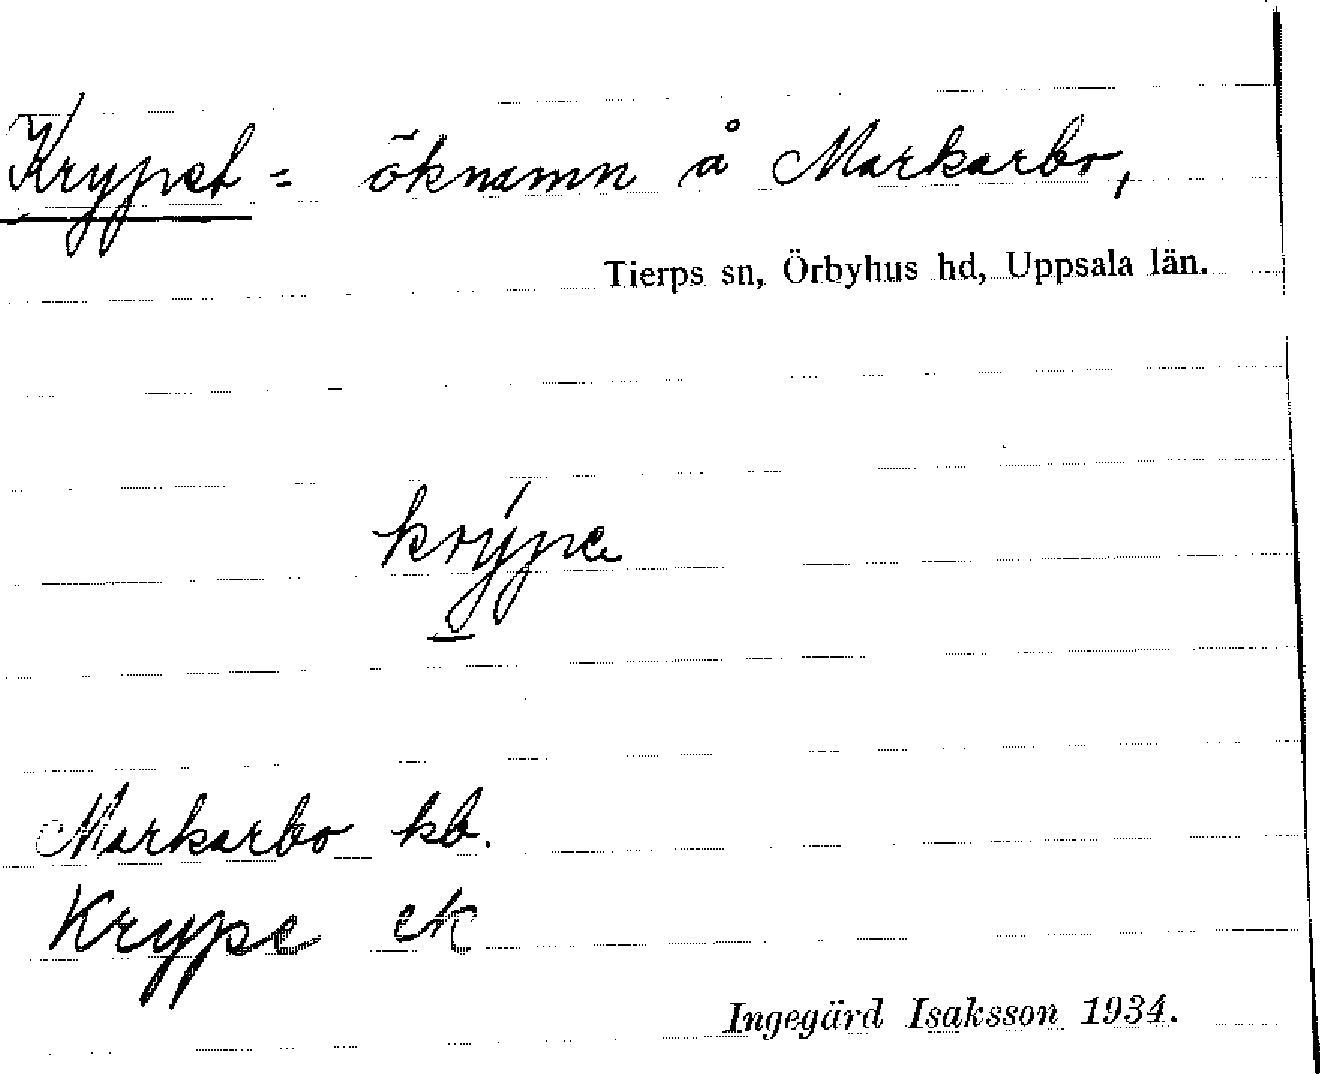 Krypet = öknamn å Markarbo,
Tierps sn, Örbyhus hd, Uppsala län.
krýpe
Markarbo kb.
Krype ek
Ingegärd Isaksson 1934.